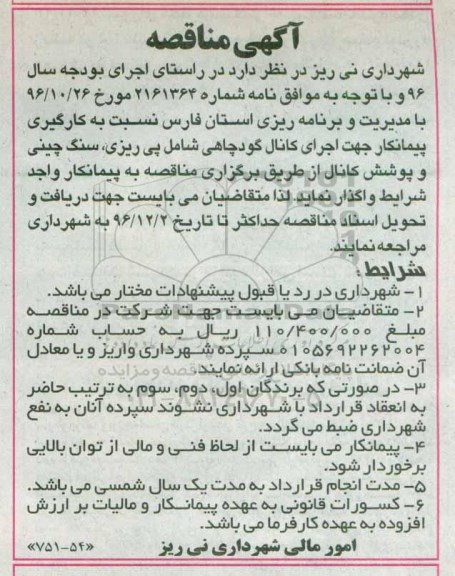 آگهی مناقصه
شهرداری نی ریز در نظر دارد در راستای اجرای بودجه سال
۹۶ و با توجه به موافق نامه شماره ۲۱۶۱۳۶۴ مورخ ۹۶/۱۰/۲۶
با مدیریت و برنامه ریزی استان فارس نسبت به کارگیری
پیمانکار جهت اجرای کانال گودچاهی شامل پی ریزی، سنگ چینی
و پوشش کانال از طریق برگزاری مناقصه به پیمانکار واجد
شرایط واگذار نماید لذا متقاضیان می بایست جهت دریافت و
تحویل اسناد مناقصه حداکثر تا تاریخ ۹۶/۱۲/۲ به شهرداری
مراجعه نمایند.
شرایط :
۱- شهرداری در رد یا قبول پیشنهادات مختار می باشد.
۲- متقاضیان می بایست جهت شرکت در مناقصه
مبلغ ۱۱۰/۴۰۰/۰۰۰ ریال به حساب شماره
۰۱۰۵۶۹۲۲۶۲۰۰۴ سپرده شهرداری واریز و یا معادل
آن ضمانت نامه بانکی ارائه نمایند.
۳- در صورتی که برندگان اول، دوم، سوم به ترتیب حاضر
به انعقاد قرارداد با شهرداری نشوند سپرده آنان به نفع
شهرداری ضبط می گردد.
۴- پیمانکار می بایست از لحاظ فنی و مالی از توان بالایی
برخوردار شود.
۵- مدت انجام قرارداد به مدت یک سال شمسی می باشد.
۶- کسورات قانونی به عهده پیمانکار و مالیات بر ارزش
افزوده به عهده کارفرما می باشد.
امور مالی شهرداری نی ریز «۷۵۱-۵۴»